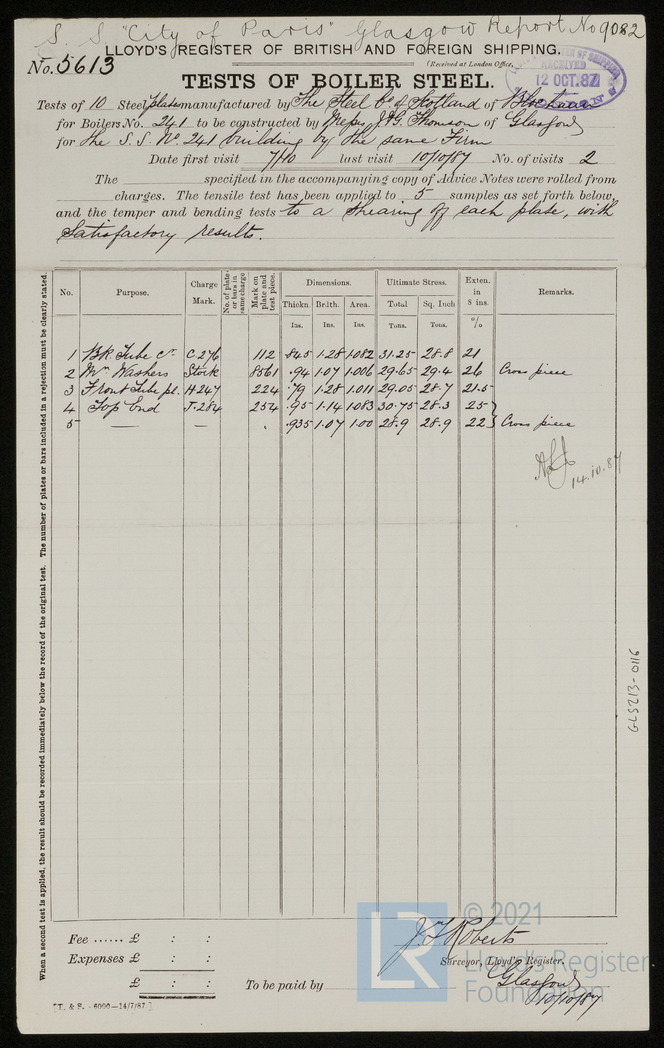 S. S. "City of Paris" Glasgow Report No 9082
LLOYD'S REGISTER OF BRITISH AND FOREIGN SHIPPING.
No. 5613
(Received at London Office,
RECEIVED
12 OCT. 87
TESTS OF BOILER STEEL.
Tests of 10 Steel plates manufactured by The Steel Co. of Scotland of Blochairn
for Boilers No. 241 to be constructed by Messrs J & G. Thomson of Glasgow
for the S. S. No. 241 building by the same Firm
Date first visit 7/10 last visit 10/10/87 No. of visits 2
The specified in the accompanying copy of Advice Notes were rolled from
charges. The tensile test has been applied to 5 samples as set forth below,
and the temper and bending tests to a shearing off each plate, with
Satisfactory results.
No. Purpose. Charge Mark. No. of plates or bars in same charge Mark on plate and test piece. Dimensions. Ultimate Stress. Exten. in 8 ins. Remarks.
Thickn Br.dth. Area. Total Sq. Inch
Ins. Ins. Ins. Tons. Tons. %
1 Bk Tube C 276 112 .845 1.28 1.082 31.25 28.8 21
2 Mn Washers Stock 8561 .94 1.07 1.006 29.65 29.4 26 Cross piece
3 Front Tube pl. H 247 224 .79 1.28 1.011 29.05 28.7 21.5
4 Top End J. 284 254 .95 1.14 1.083 30.75 28.3 25
5 — — " .935 1.07 1.00 28.9 28.9 22 Cross piece
14.10.87
When a second test is applied, the result should be recorded immediately below the record of the original test. The number of plates or bars included in a rejection must be clearly stated.
GLS213-0116
Fee ...... £ : :
Expenses £ : :
£ : :
To be paid by
J. F. Roberts
Surveyor, Lloyd's Register.
Glasgow
10/10/87
[T. & S. - 6000-14/7/87.]
LR
© 2021
Lloyd's Register
Foundation